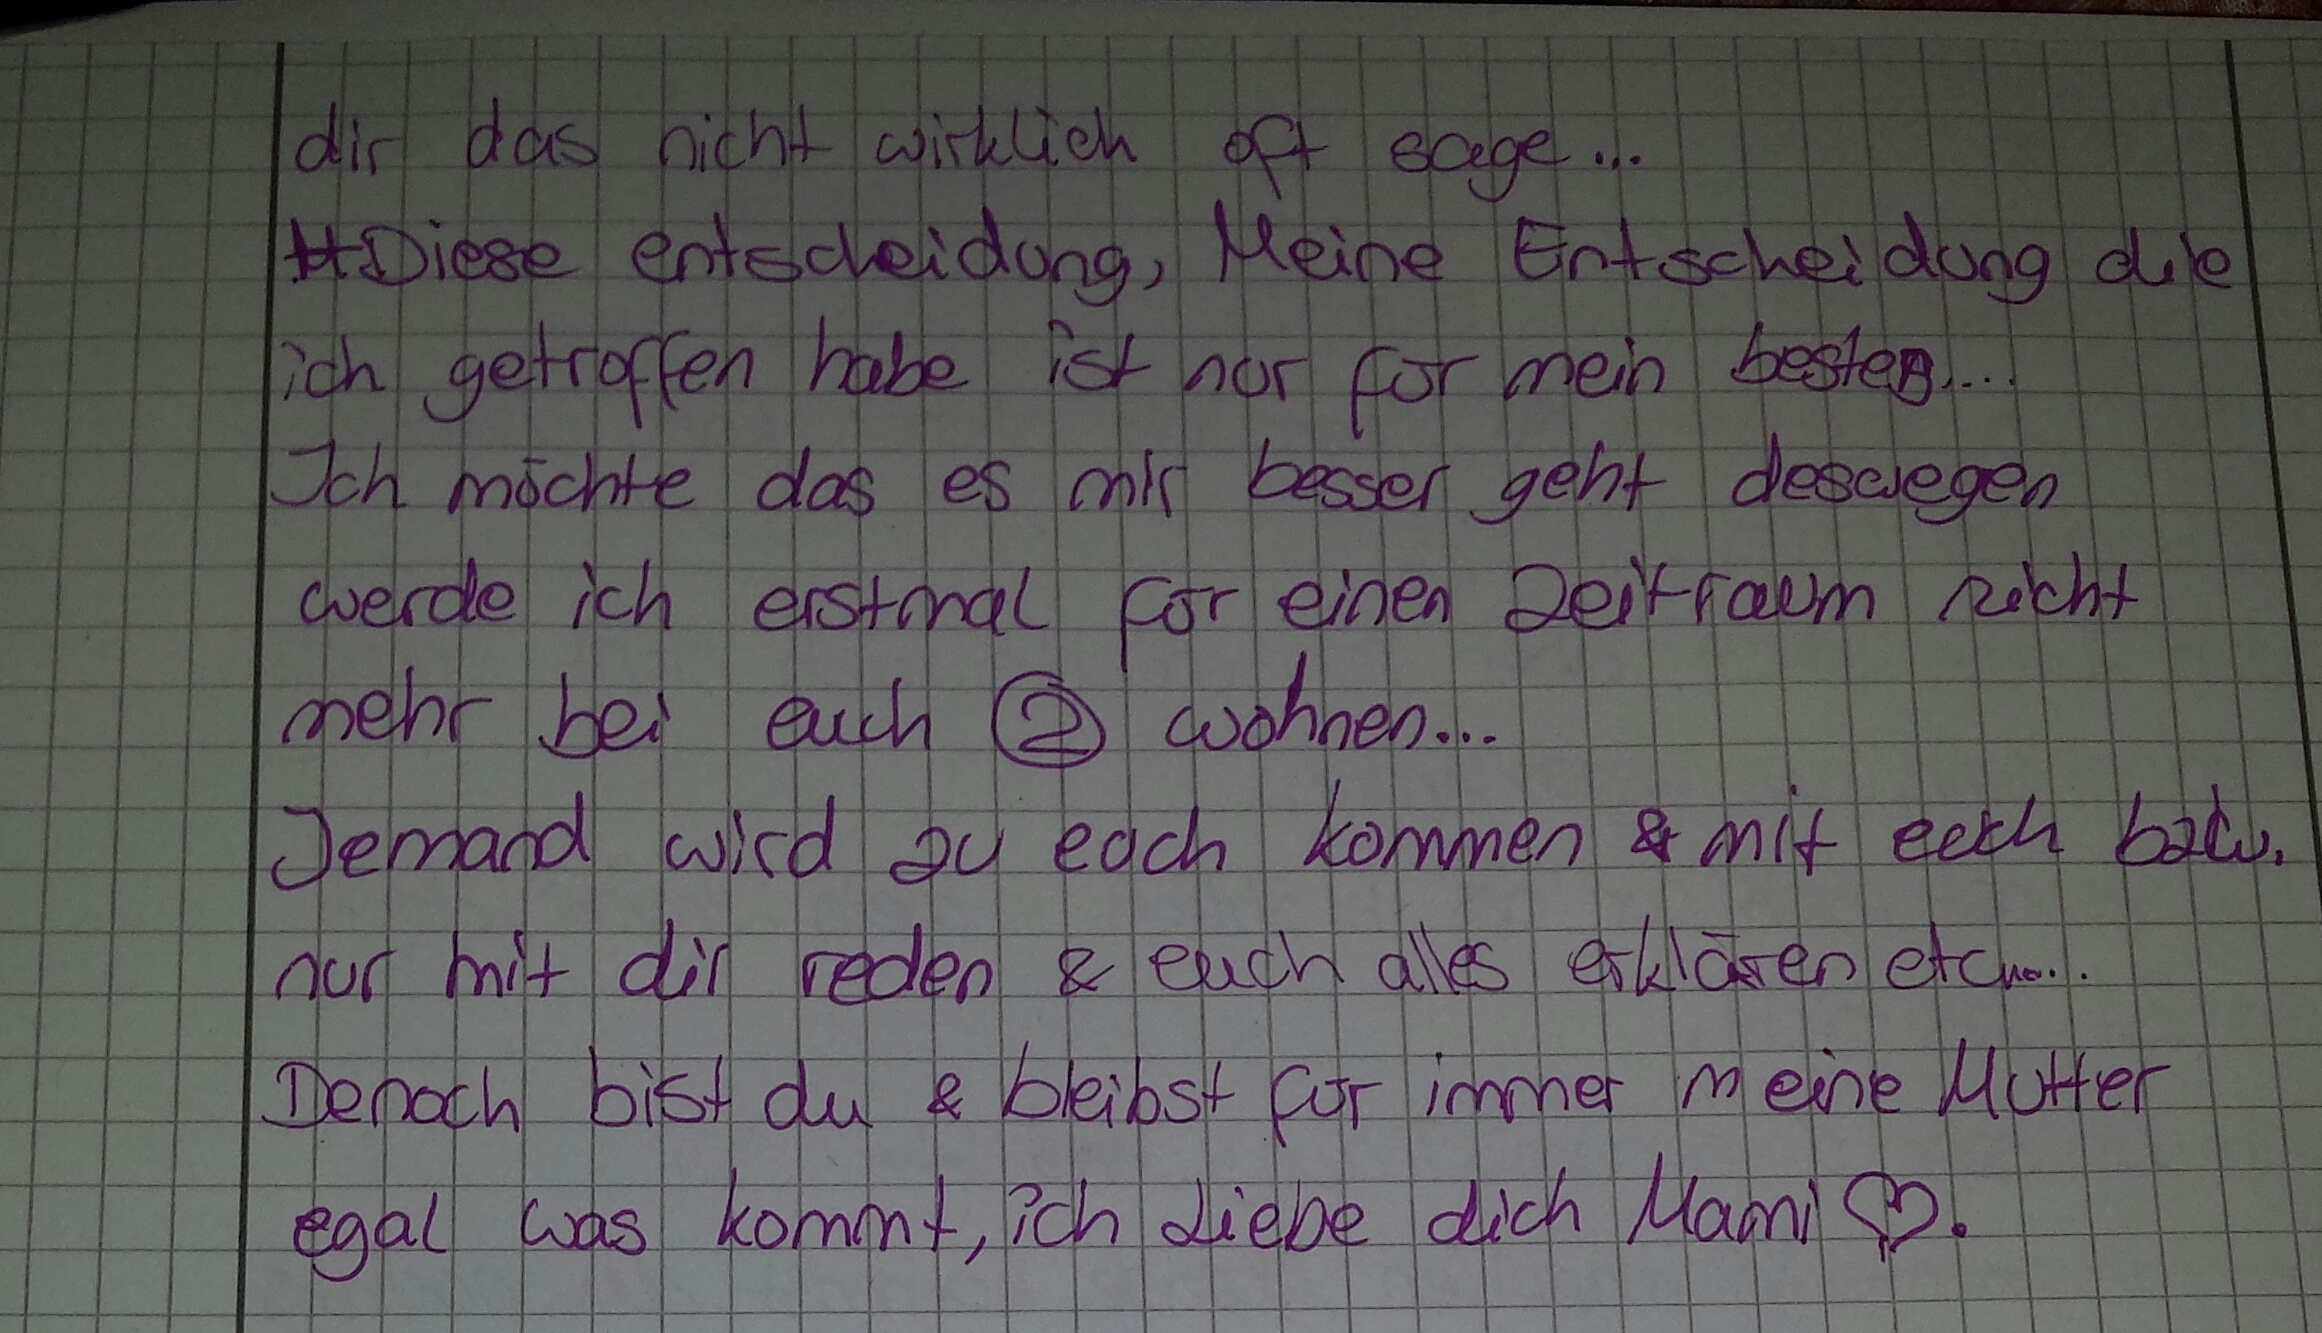 dir das nicht wirklich oft sage...
Diese entscheidung, Meine Entscheidung die
ich getroffen habe ist nur für mein bestes...
Ich möchte das es mir besser geht deswegen
werde ich erstmal für einen Zeitraum nicht
mehr bei euch 2 wohnen...
Jemand wird zu euch kommen & mit euch bzw.
nur mit dir reden & euch alles erklären etc...
Denoch bist du & bleibst für immer meine Mutter
egal was kommt, ich Liebe dich Mami ♡.